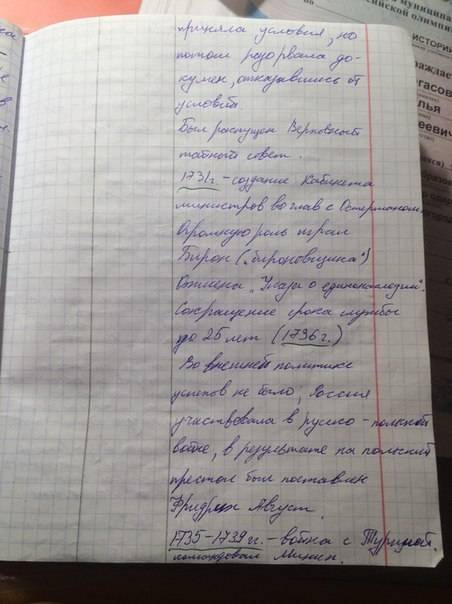 муниципа
сийской олимпи
ИСТОРИ
граждае
гасов
лья
еевич
приняла условия, но
потом разорвала до-
кумен, отказавшись от
условий.
Был распущен Верховный
тайный совет.
1731г. - создание Кабинета
министров во глав с Остерманом.
Огромную роль играл
Бирон („бироновщина")
Отмена „Указа о единонаследии".
Сокращение срока службы
до 25 лет (1796 г.)
Во внешней политике
успехов не было; Россия
участвовала в русско - польской
войне, в результате на польский
престол был поставлен
Фридрих Август.
1735 - 1739 гг. - война с Турцией.
командовал Миних.